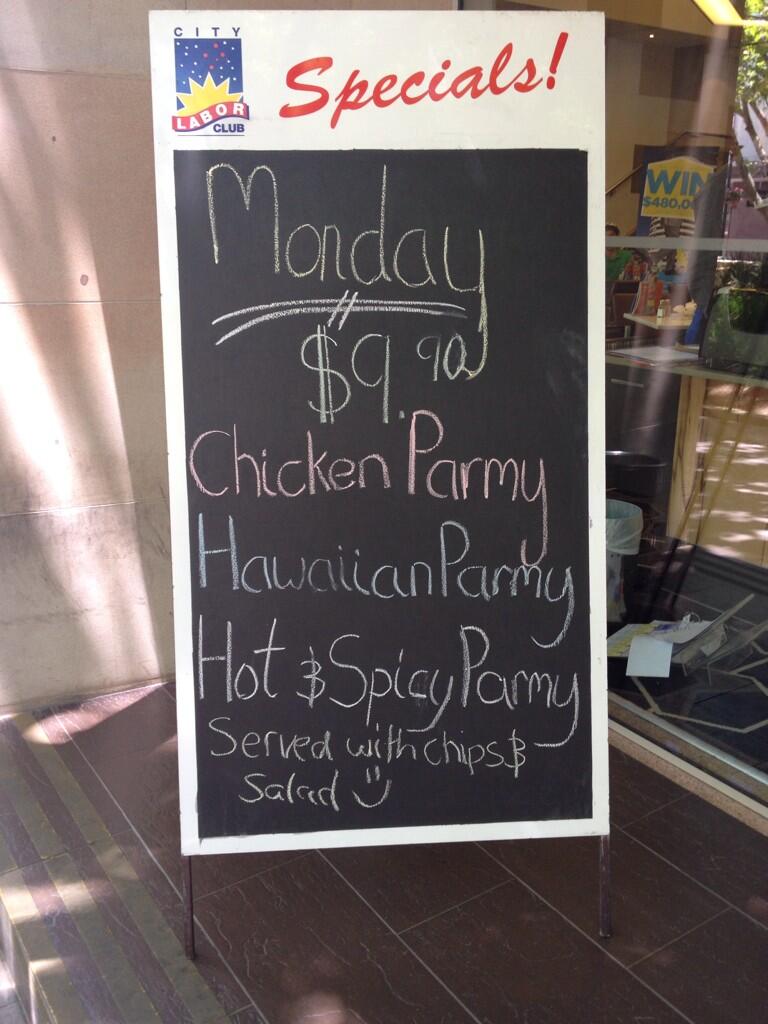 CITY
LABOR
CLUB
Specials!
WIN
Monday
$9.90
Chicken Parmy
Hawaiian Parmy
Hot & Spicy Parmy
Served with chips &
Salad